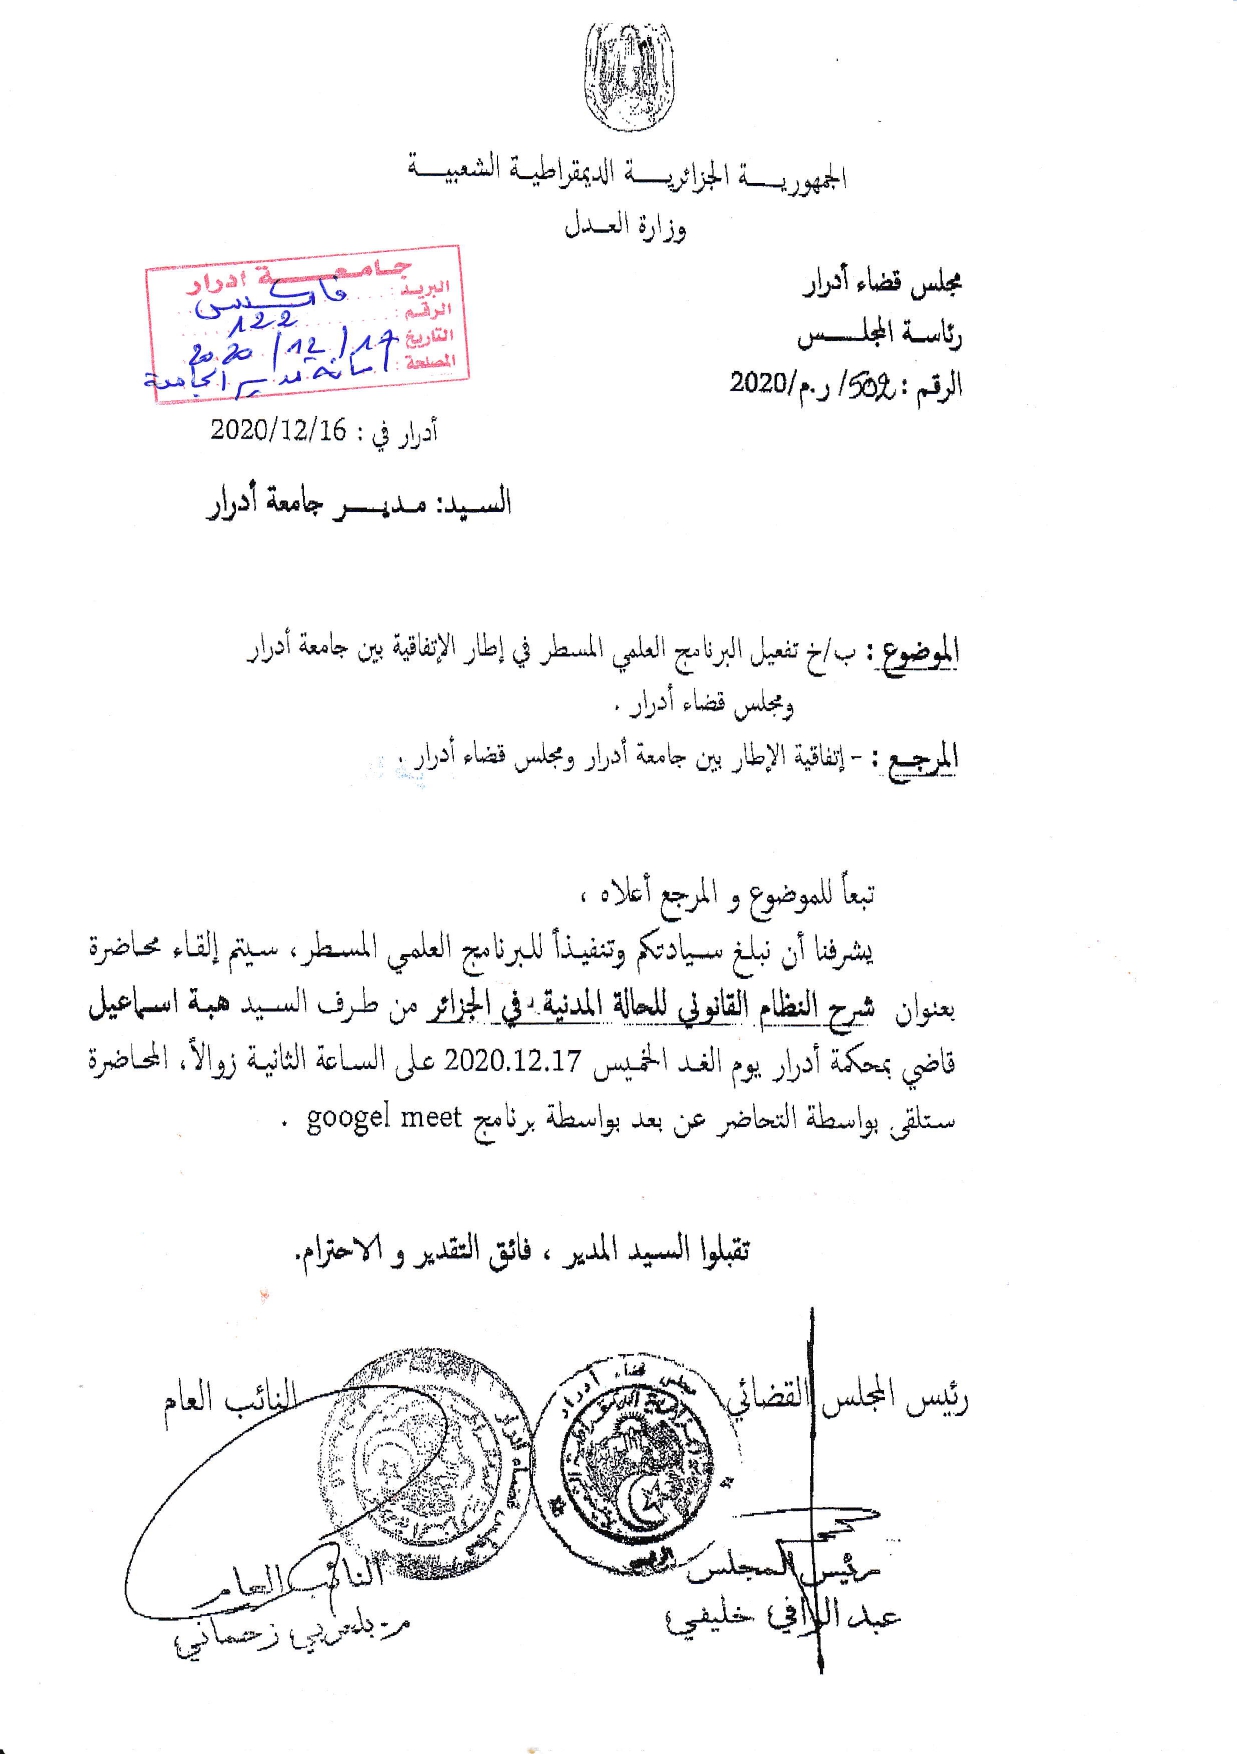 الجمهوريـــة الجزائريـــة الديمقراطيـة الشعبيـــة
وزارة العـدل
مجلس قضاء أدرار
رئاسـة المجلـــس
الرقم : 502/ ر.م/2020
جـامـعـــــة ادرار
البريـد : فاكــس
الرقـم : 122
التاريخ : 17/12/2020
المصلحة : أمانة مدير الجامعة
أدرار في : 2020/12/16
السـيد: مـديــــر جامعة أدرار
الموضوع : ب/خ تفعيل البرنامج العلمي المسطر في إطار الإتفاقية بين جامعة أدرار
ومجلس قضاء أدرار .
المرجـع : - إتفاقية الإطار بين جامعة أدرار ومجلس قضاء أدرار .
تبعاً للموضوع و المرجع أعلاه ،
يشرفنا أن نبلغ سـيادتكم وتنفيـذاً للبرنامج العلمي المسـطر، سـيتم إلقـاء محاضرة
بعنوان شرح النظـام القـانوني للحالة المدنية في الجزائر من طـرف السـيد هبـة اسـماعيل
قاضي بمحكمة أدرار يوم الغـد الخميس 2020.12.17 على السـاعة الثانيـة زوالاً، المحاضرة
سـتلقى بواسطة التحاضر عن بعد بواسطة برنامج googel meet .
تقبلوا السـيد المدير ، فائق التقدير و الاحترام.
رئيس المجلس القضائي
النائب العام
مجلس قضاء أدرار
الرئيس
مجلس قضاء أدرار
رئيس المجلس
عبد الرافي خليفي
النائب العام
م. بلعربي زحماني